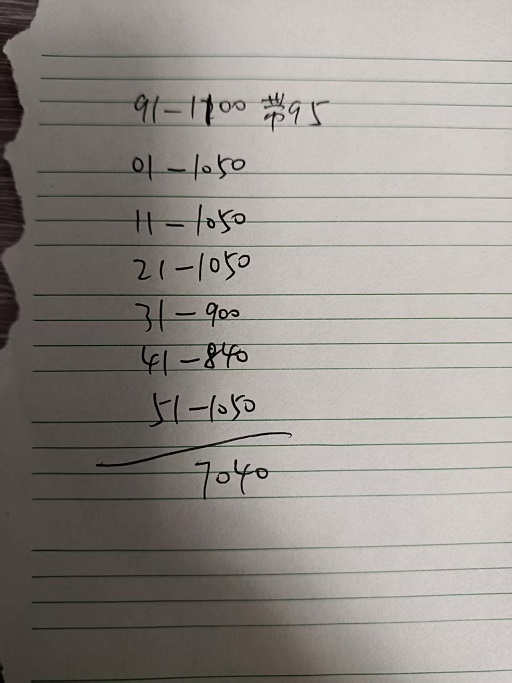 91-1100 带95
01-1050
11-1050
21-1050
31-900
41-840
51-1050
7040